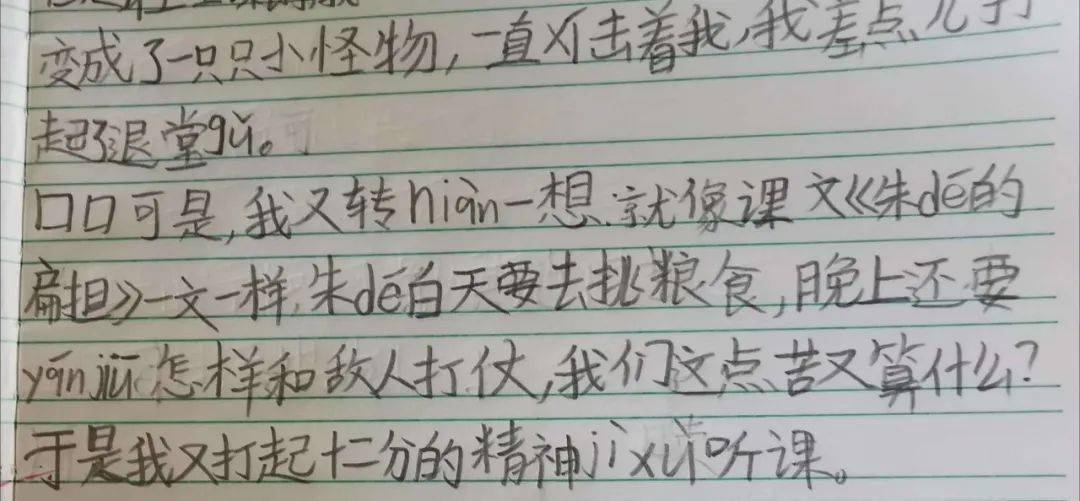 变成了一只只小怪物,一直刈击着我,我差点儿打
起了退堂gǔ。
口口可是,我又转niàn一想.就像课文《朱dé的
扁担》一文一样.朱dé白天要去挑粮食,晚上还要
yánjiū怎样和敌人打仗,我们这点苦又算什么?
于是我又打起十二分的精神jìxù听课。